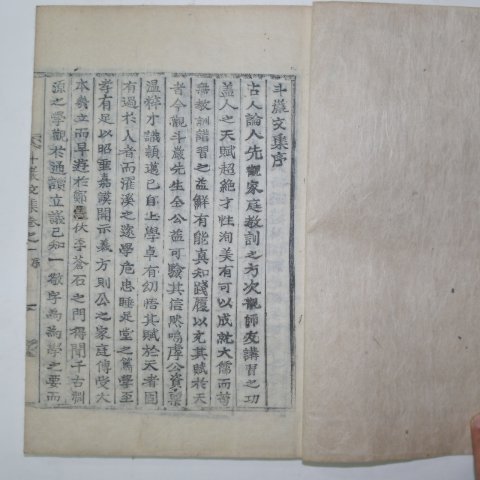 斗巖文集序
古人論人先觀家庭敎訓之方次觀師友講習之功
盖人之天賦超絶才性洵美有可以成就大儒而苟
無敎訓講習之益鮮有能眞知踐履以充其賦於天
者今觀斗巖先生全公益可驗其信然嗚虖公資稟
温粹才識穎邁已自上學卓有幼悟其賦於天者固
有過於人者而濯溪之遠學危忠睡足堂之篤學至
孝有足以昭垂嘉謨開示義方則公之家庭傳受大
本旣立而早遊於鄭愚伏李蒼石之門得聞千古淵
源之學觀於通讀立議已知一敬字爲爲學之要而
斗巖文集卷之一 序